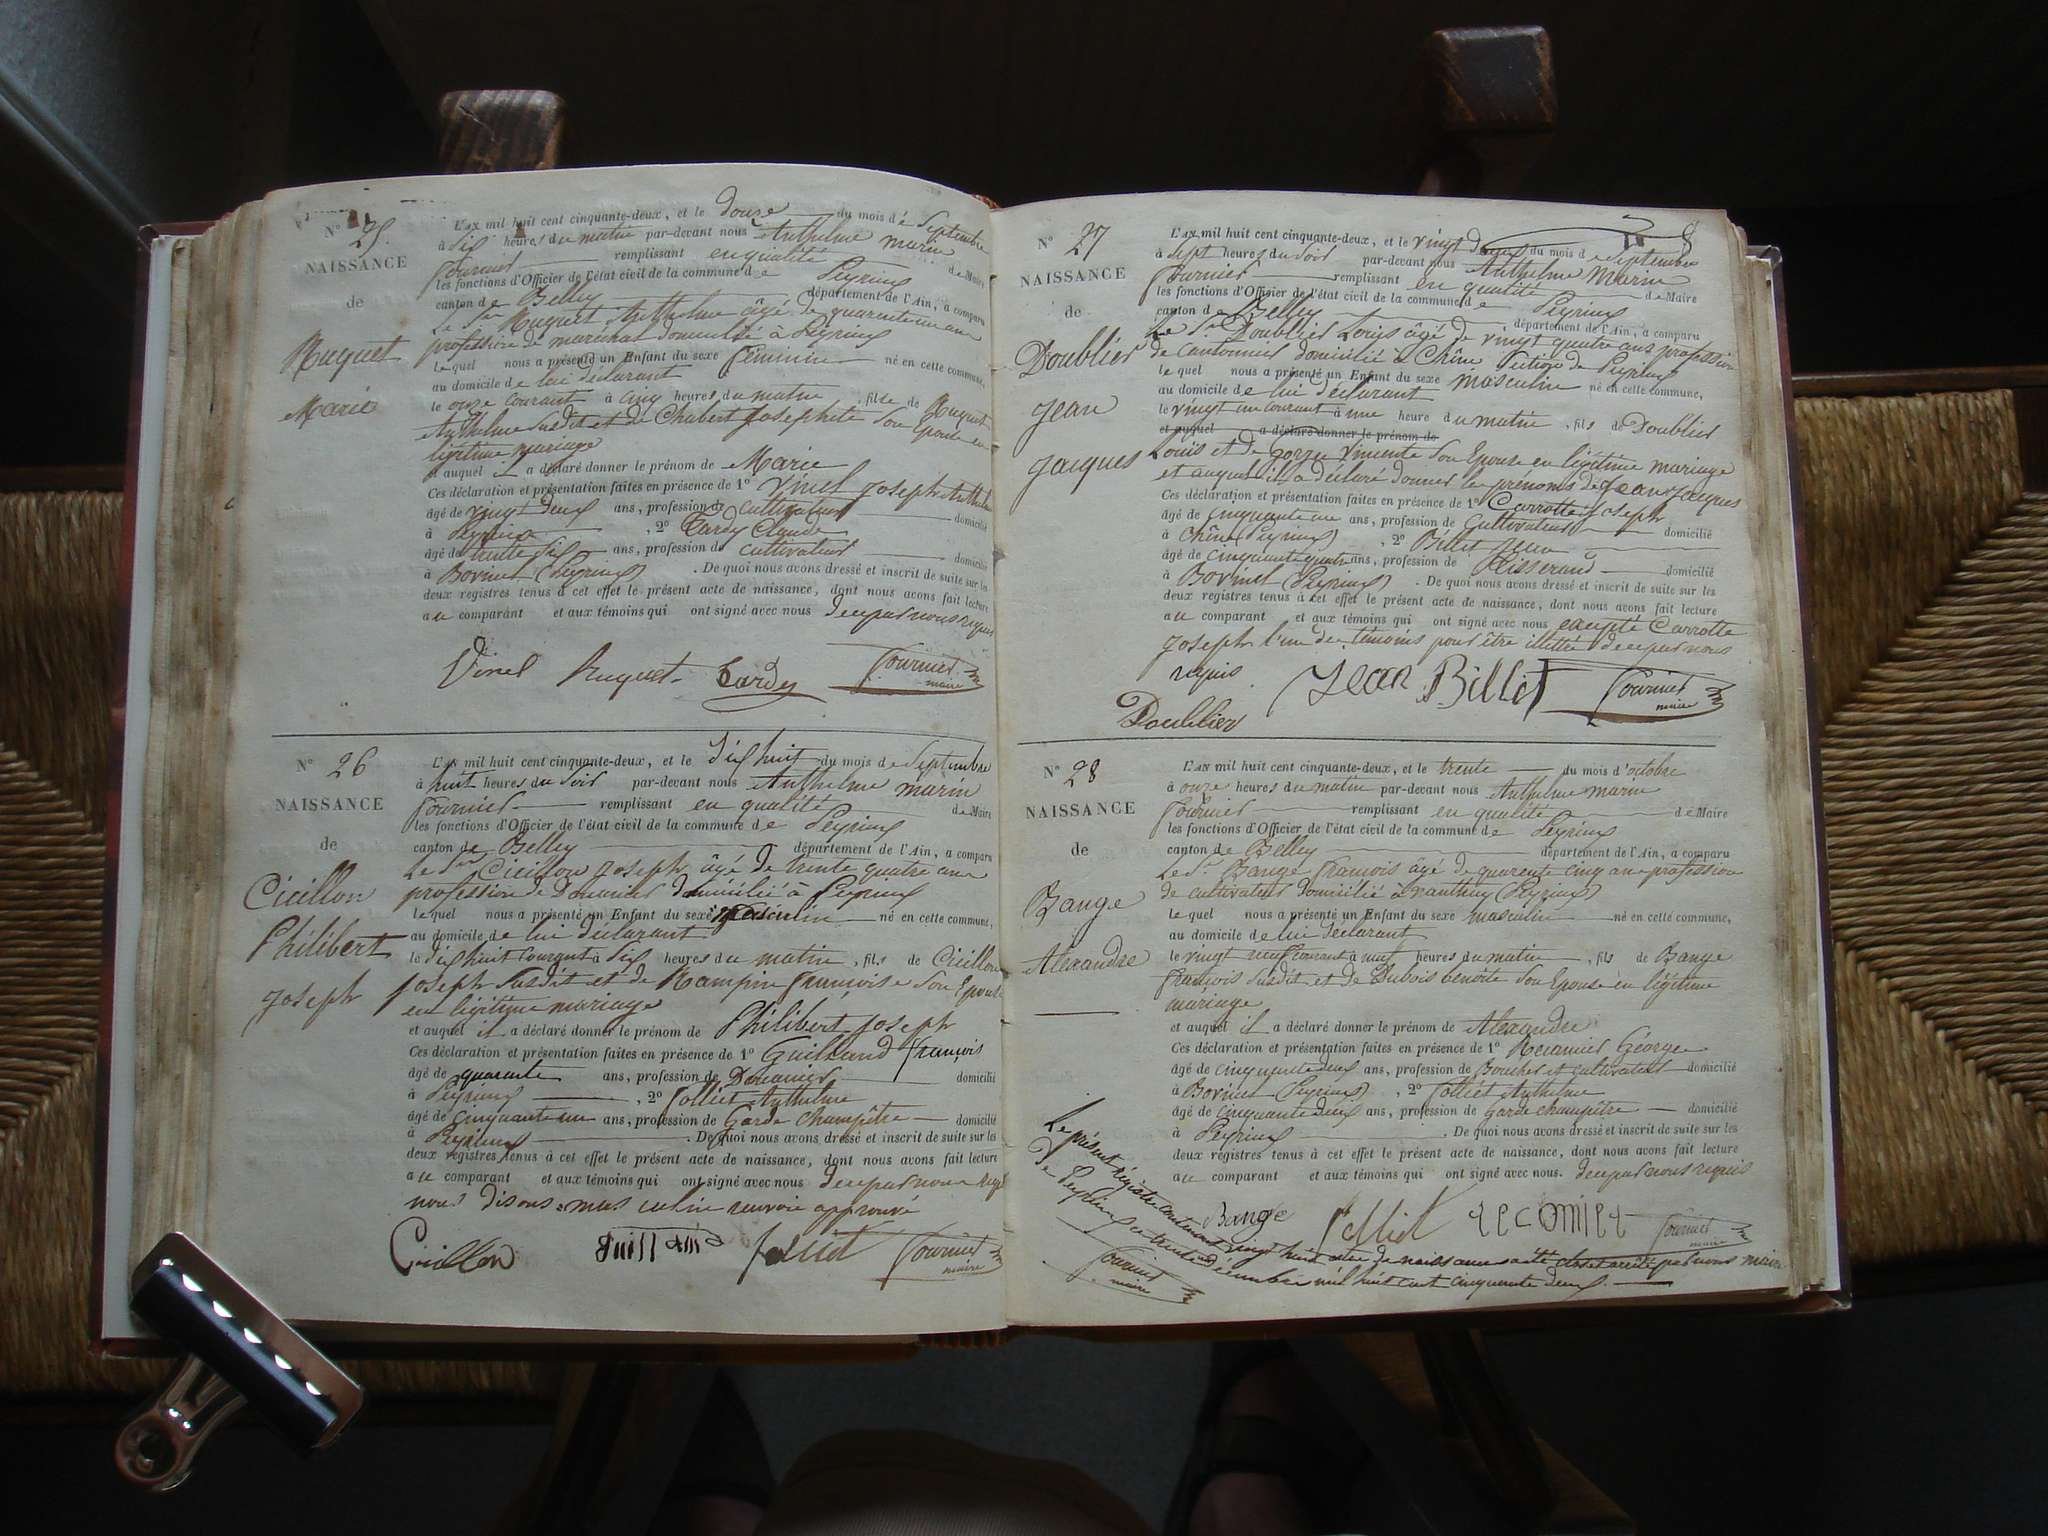 N° 25
NAISSANCE
de
Ruguet
Marie
L'AN mil huit cent cinquante-deux, et le douze du mois de Septembre
à Six heures du matin par-devant nous Anthelme marin
Fournier remplissant en qualité de Maire
les fonctions d'Officier de l'état civil de la commune de Peyrieux
canton de Belley département de l'Ain, a comparu
Le Sr Ruguet Anthelme âgé de quarante un an
profession de marechal domicilié à Peyrieux
lequel nous a présenté un Enfant du sexe féminin né en cette commune,
au domicile de lui déclarant
le onze courant à cinq heures du matin, fille de Ruguet
Anthelme Susdit et de Chabert Josephete Son Epouse en
légitime mariage
et auquel il a déclaré donner le prénom de Marie
Ces déclaration et présentation faites en présence de 1° Vinel Joseph Anthelme
âgé de vingt deux ans, profession de cultivateur domicilié
à Peyrieux, 2° Tardy Claude
âgé de trente Six ans, profession de cultivateur domicilié
à Bovinel (Peyrieux). De quoi nous avons dressé et inscrit de suite sur les
deux registres tenus à cet effet le présent acte de naissance, dont nous avons fait lecture
au comparant et aux témoins qui ont signé avec nous de ce par nous requis
Vinel Ruguet Tardy Fournier
maire
N° 26
NAISSANCE
de
Cicillon
Philibert
Joseph
L'AN mil huit cent cinquante-deux, et le dix huit du mois de Septembre
à huit heures du Soir par-devant nous Anthelme marin
Fournier remplissant en qualité de Maire
les fonctions d'Officier de l'état civil de la commune de Peyrieux
canton de Belley département de l'Ain, a comparu
Le Sr Cicillon Joseph âgé de trente quatre ans
profession de Douanier domicilié à Peyrieux
lequel nous a présenté un Enfant du sexe masculin né en cette commune,
au domicile de lui déclarant
le dix huit courant à Six heures du matin, fils de Cicillon
Joseph Susdit et de Rampin françoise Son Epouse
en légitime mariage
et auquel il a déclaré donner le prénom de Philibert Joseph
Ces déclaration et présentation faites en présence de 1° Guilland françois
âgé de quarante ans, profession de Douanier domicilié
à Peyrieux, 2° Folliet Anthelme
âgé de cinquante un ans, profession de Garde champêtre domicilié
à Peyrieux. De quoi nous avons dressé et inscrit de suite sur les
deux registres tenus à cet effet le présent acte de naissance, dont nous avons fait lecture
au comparant et aux témoins qui ont signé avec nous de ce par nous requis
nous disons masculin renvoi approuvé
Cicillon folliet Fournier
maire
N° 27
NAISSANCE
de
Doublier
Jean
Jacques
L'AN mil huit cent cinquante-deux, et le vingt deux du mois de Septembre
à Sept heures du Soir par-devant nous Anthelme Marin
Fournier remplissant en qualité de Maire
les fonctions d'Officier de l'état civil de la commune de Peyrieux
canton de Belley département de l'Ain, a comparu
Le Sr Doublier Louis âgé de vingt quatre ans profession
de cantonnier domicilié à Chêne Section de Peyrieux
lequel nous a présenté un Enfant du sexe masculin né en cette commune,
au domicile de lui déclarant
le vingt un courant à une heure du matin, fils de Doublier
et auquel a déclaré donner le prénom de
Louis et de Vincente Son Epouse en légitime mariage
et auquel il a déclaré donner les prénoms de Jean Jacques
Ces déclaration et présentation faites en présence de 1° Carrotte Joseph
âgé de cinquante un ans, profession de Cultivateur domicilié
à Chêne (Peyrieux), 2° Billet Jean
âgé de cinquante quatre ans, profession de Tisserand domicilié
à Bovinel (Peyrieux). De quoi nous avons dressé et inscrit de suite sur les
deux registres tenus à cet effet le présent acte de naissance, dont nous avons fait lecture
au comparant et aux témoins qui ont signé avec nous excepté Carrotte
Joseph l'un des témoins pour être illitéré de ce par nous
requis Jean Billet Fournier
maire
Doublier
N° 28
NAISSANCE
de
Bange
Alexandre
L'AN mil huit cent cinquante-deux, et le trente du mois d'octobre
à onze heures du matin par-devant nous Anthelme marin
Fournier remplissant en qualité de Maire
les fonctions d'Officier de l'état civil de la commune de Peyrieux
canton de Belley département de l'Ain, a comparu
Le Sr Bange françois âgé de quarante cinq ans profession
de cultivateur domicilié à (Peyrieux)
lequel nous a présenté un Enfant du sexe masculin né en cette commune,
au domicile de lui déclarant
le vingt neuf courant à neuf heures du matin, fils de Bange
françois Susdit et de Dubois benoite Son Epouse en légitime
mariage
et auquel il a déclaré donner le prénom de Alexandre
Ces déclaration et présentation faites en présence de 1° Recamier George
âgé de cinquante deux ans, profession de Boucher et cultivateur domicilié
à Bovinel (Peyrieux), 2° folliet Anthelme
âgé de cinquante deux ans, profession de Garde champêtre domicilié
à Peyrieux. De quoi nous avons dressé et inscrit de suite sur les
deux registres tenus à cet effet le présent acte de naissance, dont nous avons fait lecture
au comparant et aux témoins qui ont signé avec nous. de ce par nous requis
Bange folliet Fournier
maire
Le présent régistre contenant vingt huit actes de naissance a été clos et arrêté par nous maire
de Peyrieux ce trente un décembre mil huit cent cinquante deux.
Fournier
maire